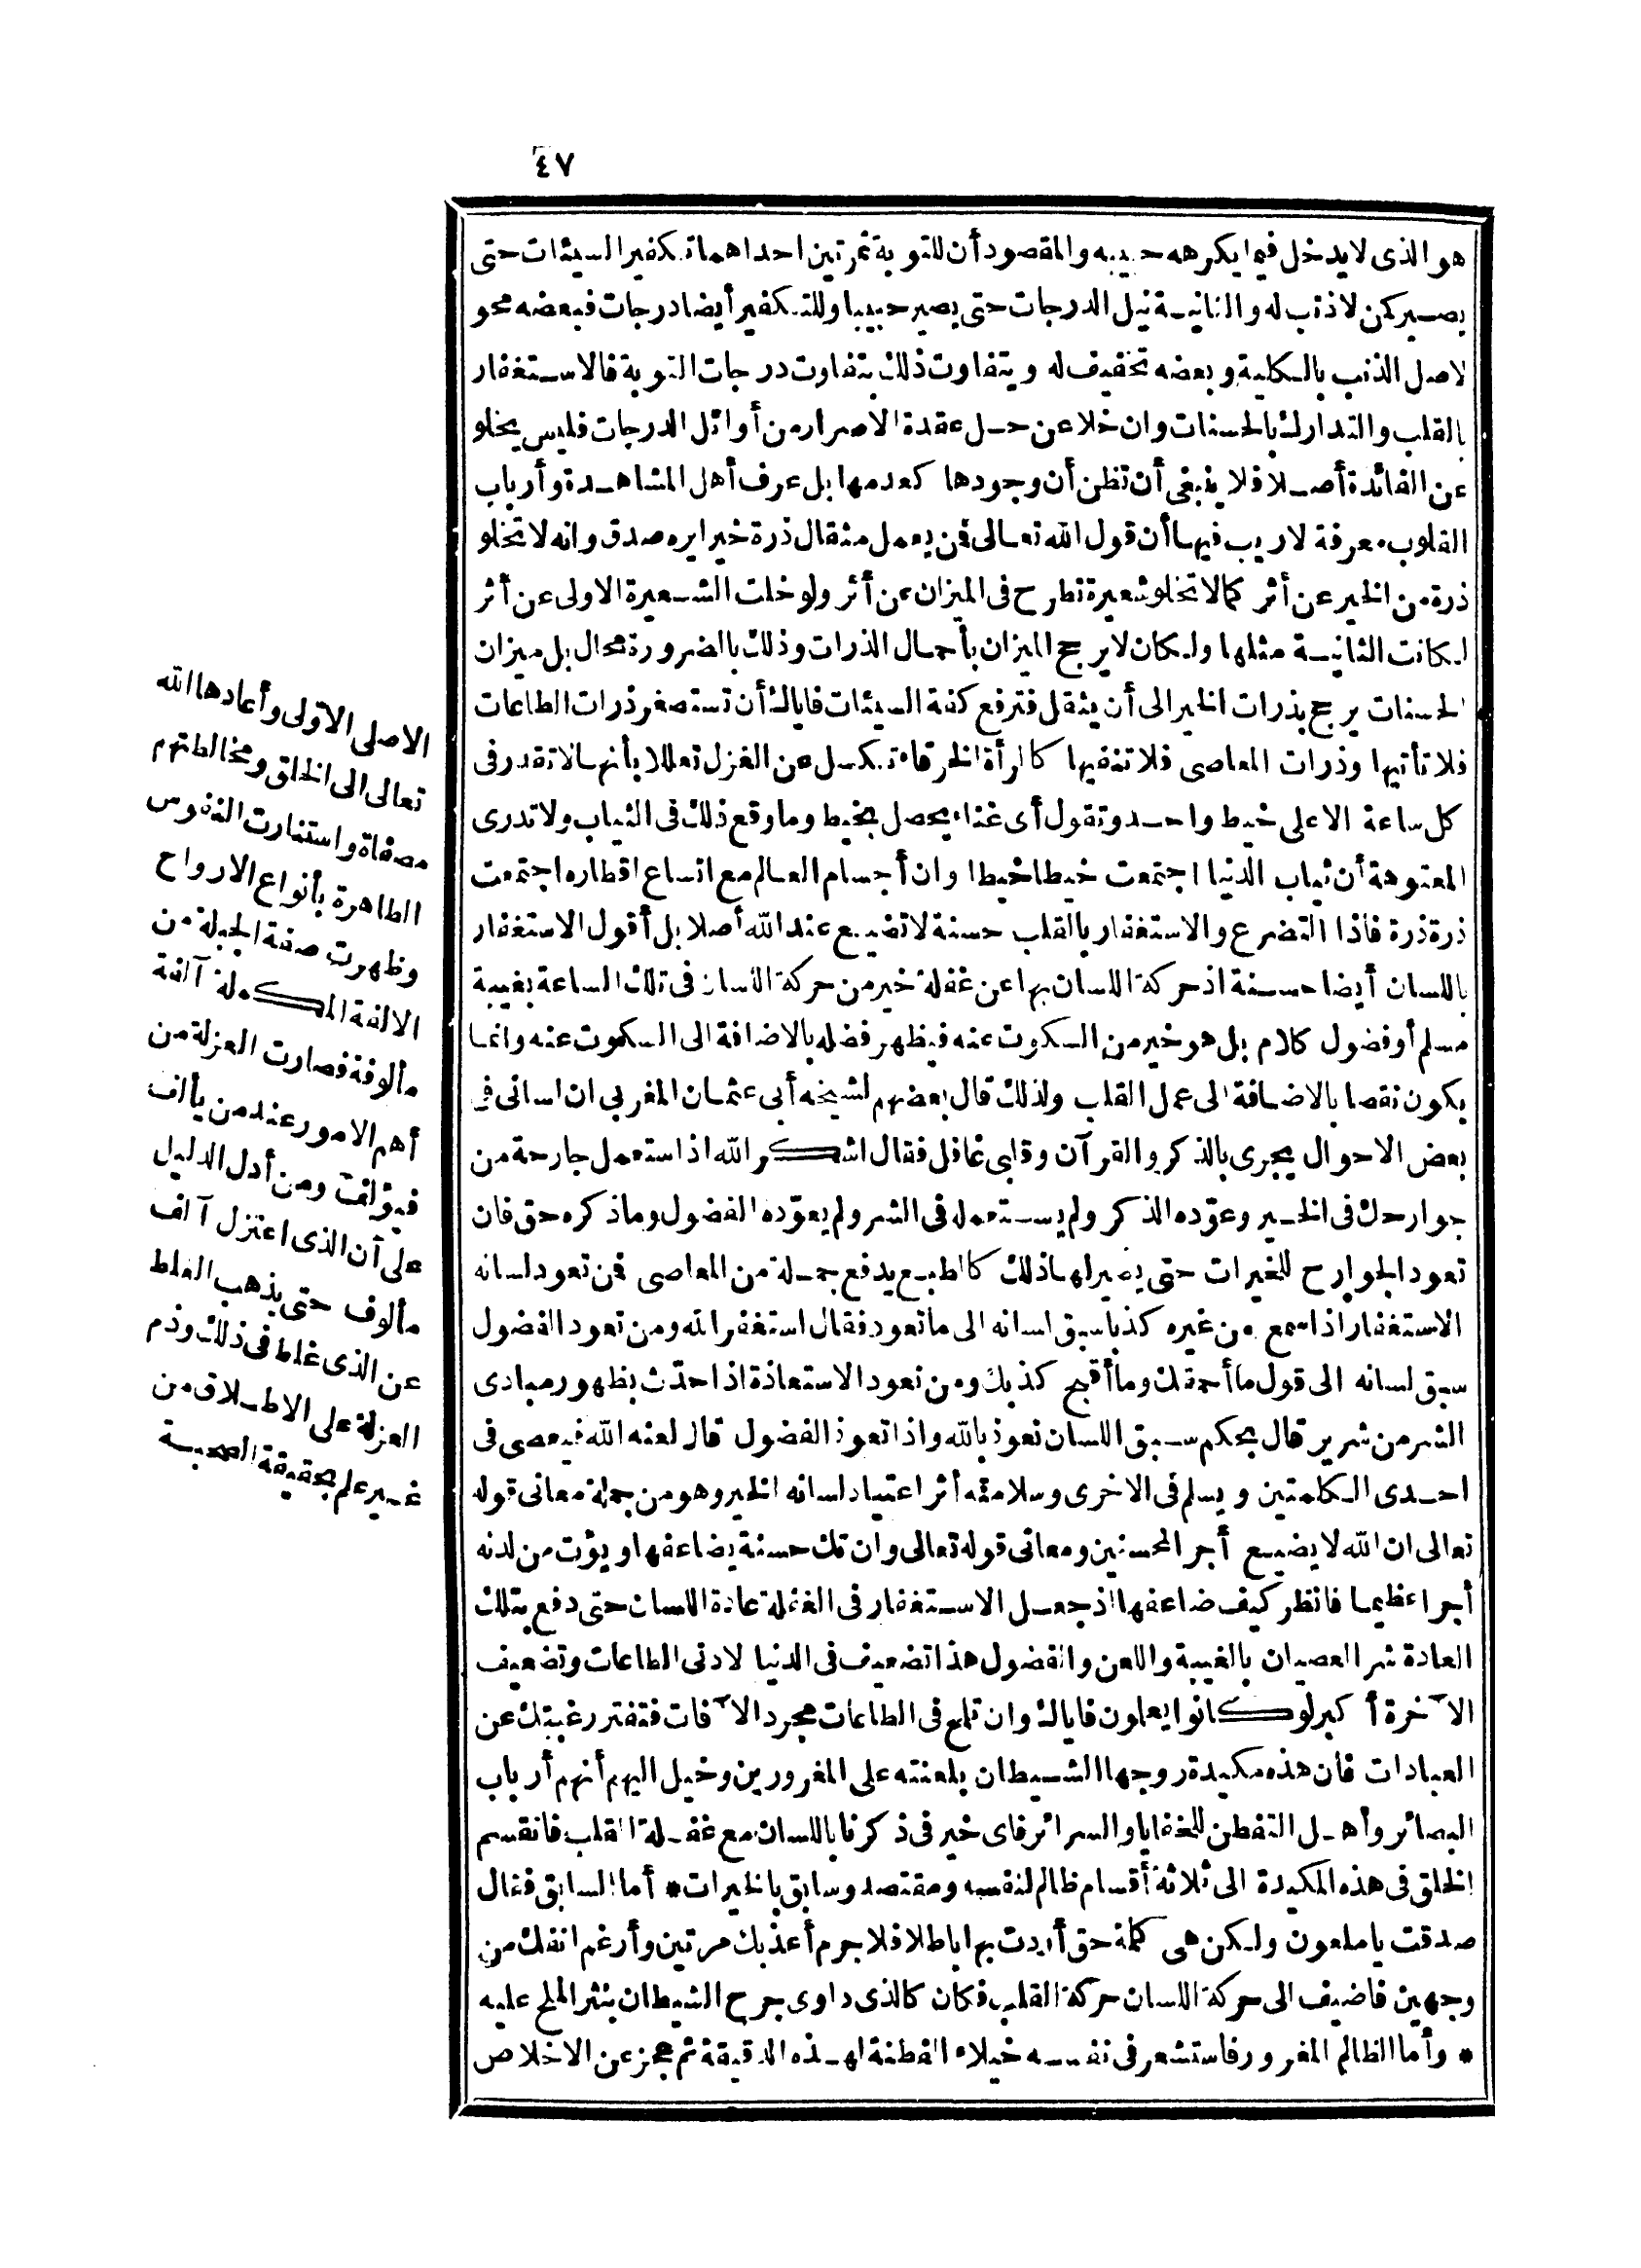 ٤٧
هو الذى لا يدخل فيما يكرهه حبيبه والمقصود أن للتوبة ثمرتين احداهما تكفير السيئات حتى
يصير كمن لا ذنب له والثانية نيل الدرجات حتى يصير حبيبا وللتكفير أيضا درجات فبعضه محو
لاصل الذنب بالكلية وبعضه تخفيف له ويتفاوت ذلك بتفاوت درجات التوبة فالاستغفار
بالقلب والتدارك بالحسنات وان خلا عن حل عقدة الاصرار من أوائل الدرجات فليس يخلو
عن الفائدة أصلا فلا ينبغى أن تظن أن وجودها كعدمها بل عرف أهل المشاهدة وأرباب
القلوب معرفة لا ريب فيها أن قول الله تعالى فمن يعمل مثقال ذرة خيرا يره صدق وانه لا تخلو
ذرة من الخير عن أثر كما لا تخلو شعيرة تطرح فى الميزان عن أثر ولو خلت الشعيرة الاولى عن أثر
لكانت الثانية مثلها ولكان لا يرجح الميزان بأحمال الذرات وذلك بالضرورة محال بل ميزان
الحسنات يرجح بذرات الخير الى أن يثقل فترفع كفة السيئات فاياك أن تستصغر ذرات الطاعات
فلا تأتيها وذرات المعاصى فلا تنفيها كالمرأة الخرقاء تكسل عن الغزل تعللا بأنها لا تقدر فى
كل ساعة الا على خيط واحد وتقول أى غناء يحصل بخيط وما وقع ذلك فى الثياب ولا تدرى
المعتوهة أن ثياب الدنيا اجتمعت خيطا خيطا وان أجسام العالم مع اتساع اقطاره اجتمعت
ذرة ذرة فاذا التضرع والاستغفار بالقلب حسنة لا تضيع عند الله أصلا بل أقول الاستغفار
باللسان أيضا حسنة اذ حركة اللسان بها عن غفلة خير من حركة اللسان فى تلك الساعة بغيبة
مسلم أو فضول كلام بل هو خير من السكوت عنه فيظهر فضله بالاضافة الى السكوت عنه وانما
يكون نقصا بالاضافة الى عمل القلب ولذلك قال بعضهم لشيخه أبى عثمان المغربى ان لسانى فى
بعض الاحوال يجرى بالذكر والقرآن وقلبى غافل فقال اشكر الله اذ استعمل جارحة من
جوارحك فى الخير وعوّده الذكر ولم يستعمله فى الشر ولم يعوّده الفضول وما ذكره حق فان
تعود الجوارح للخيرات حتى يصير لها ذلك كالطبع يدفع جملة من المعاصى فمن تعود لسانه
الاستغفار اذا سمع من غيره كذبا سبق لسانه الى ما تعود فقال استغفر الله ومن تعود الفضول
سبق لسانه الى قول ما أحمقك وما أقبح كذبك ومن تعود الاستعاذة اذا حدّث بظهور مبادى
الشر من شرير قال بحكم سبق اللسان نعوذ بالله واذا تعود الفضول قال لعنه الله فيعصى فى
احدى الكلمتين ويسلم فى الاخرى وسلامته أثر اعتياد لسانه الخير وهو من جملة معانى قوله
تعالى ان الله لا يضيع أجر المحسنين ومعانى قوله تعالى وان تك حسنة يضاعفها ويؤت من لدنه
أجرا عظيما فانظر كيف ضاعفها اذ جعل الاستغفار فى الغفلة عادة اللسان حتى دفع بتلك
العادة شر العصيان بالغيبة واللعن والفضول هذا تضعيف فى الدنيا لادنى الطاعات وتضعيف
الآخرة أكبر لو كانوا يعلمون فاياك وان تلمح فى الطاعات مجرد الآفات فتفتر رغبتك عن
العبادات فان هذه مكيدة روجها الشيطان بلعنته على المغرورين وخيل اليهم أنهم أرباب
البصائر وأهل التفطن للخفايا والسرائر فاى خير فى ذكرنا باللسان مع غفلة القلب فانقسم
الخلق فى هذه المكيدة الى ثلاثة أقسام ظالم لنفسه ومقتصد وسابق بالخيرات * أما السابق فقال
صدقت يا ملعون ولكن هى كلمة حق أردت بها باطلا فلا جرم أعذبك مرتين وأرغم انفك من
وجهين فاضيف الى حركة اللسان حركة القلب فكان كالذى داوى جرح الشيطان بنثر الملح عليه
* وأما الظالم المغرور فاستشعر فى نفسه خيلاء الفطنة لهذه الدقيقة ثم عجز عن الاخلاص
الاصلى الاوّلى وأعادها الله
تعالى الى الخلق ومخالطتهم
مصفاة واستنارت النفوس
الطاهرة بأنواع الارواح
وظهرت صفة الجبلة من
الالفة المكملة آلفة
مألوفة فصارت العزلة من
أهم الامور عند من يألف
فيؤلف ومن أدل الدليل
على أن الذى اعتزل آلف
مألوف حتى يذهب الغلط
عن الذى غلط فى ذلك وذم
العزلة على الاطلاق من
غير علم بحقيقة الصحبة